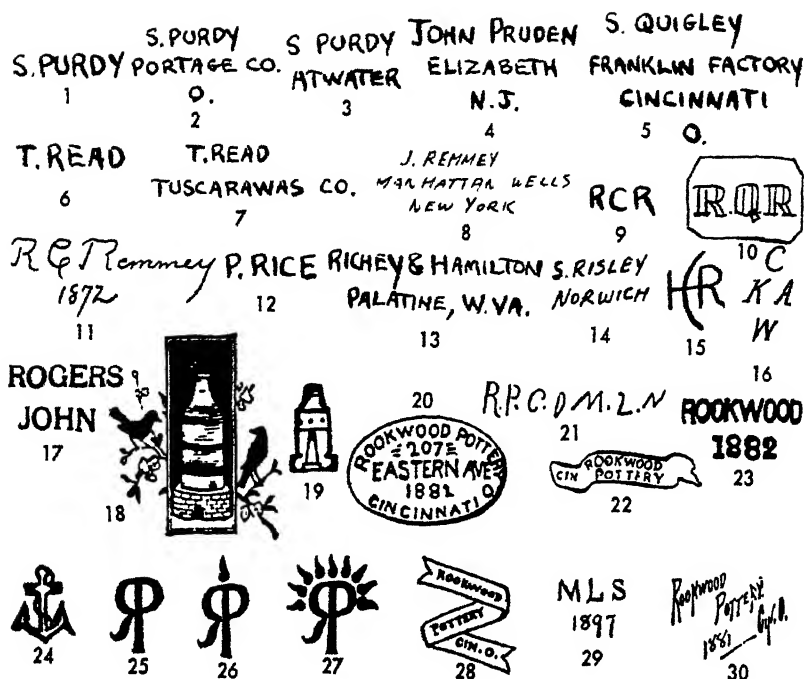 S. PURDY
1
S. PURDY
PORTAGE CO.
O.
2
S PURDY
ATWATER
3
JOHN PRUDEN
ELIZABETH
N.J.
4
S. QUIGLEY
FRANKLIN FACTORY
CINCINNATI
O.
5
T. READ
6
T. READ
TUSCARAWAS CO.
7
J. REMMEY
MANHATTAN WELLS
NEW YORK
8
RCR
9
R.Q.R
10
R C Remmey
1872
11
P. RICE
12
RICHEY & HAMILTON
PALATINE, W. VA.
13
S. RISLEY
NORWICH
14
HR
15
C
K A
W
16
ROGERS
JOHN
17
18
19
20
ROOKWOOD POTTERY
=207=
EASTERN AVE
1882
CINCINNATI O.
R.P.C.O M.L.N
21
CIN ROOKWOOD
POTTERY
22
ROOKWOOD
1882
23
24
RP
25
RP
26
RP
27
ROOKWOOD
POTTERY
CIN. O.
28
MLS
1897
29
Rookwood
Pottery
1881 Cin. O.
30